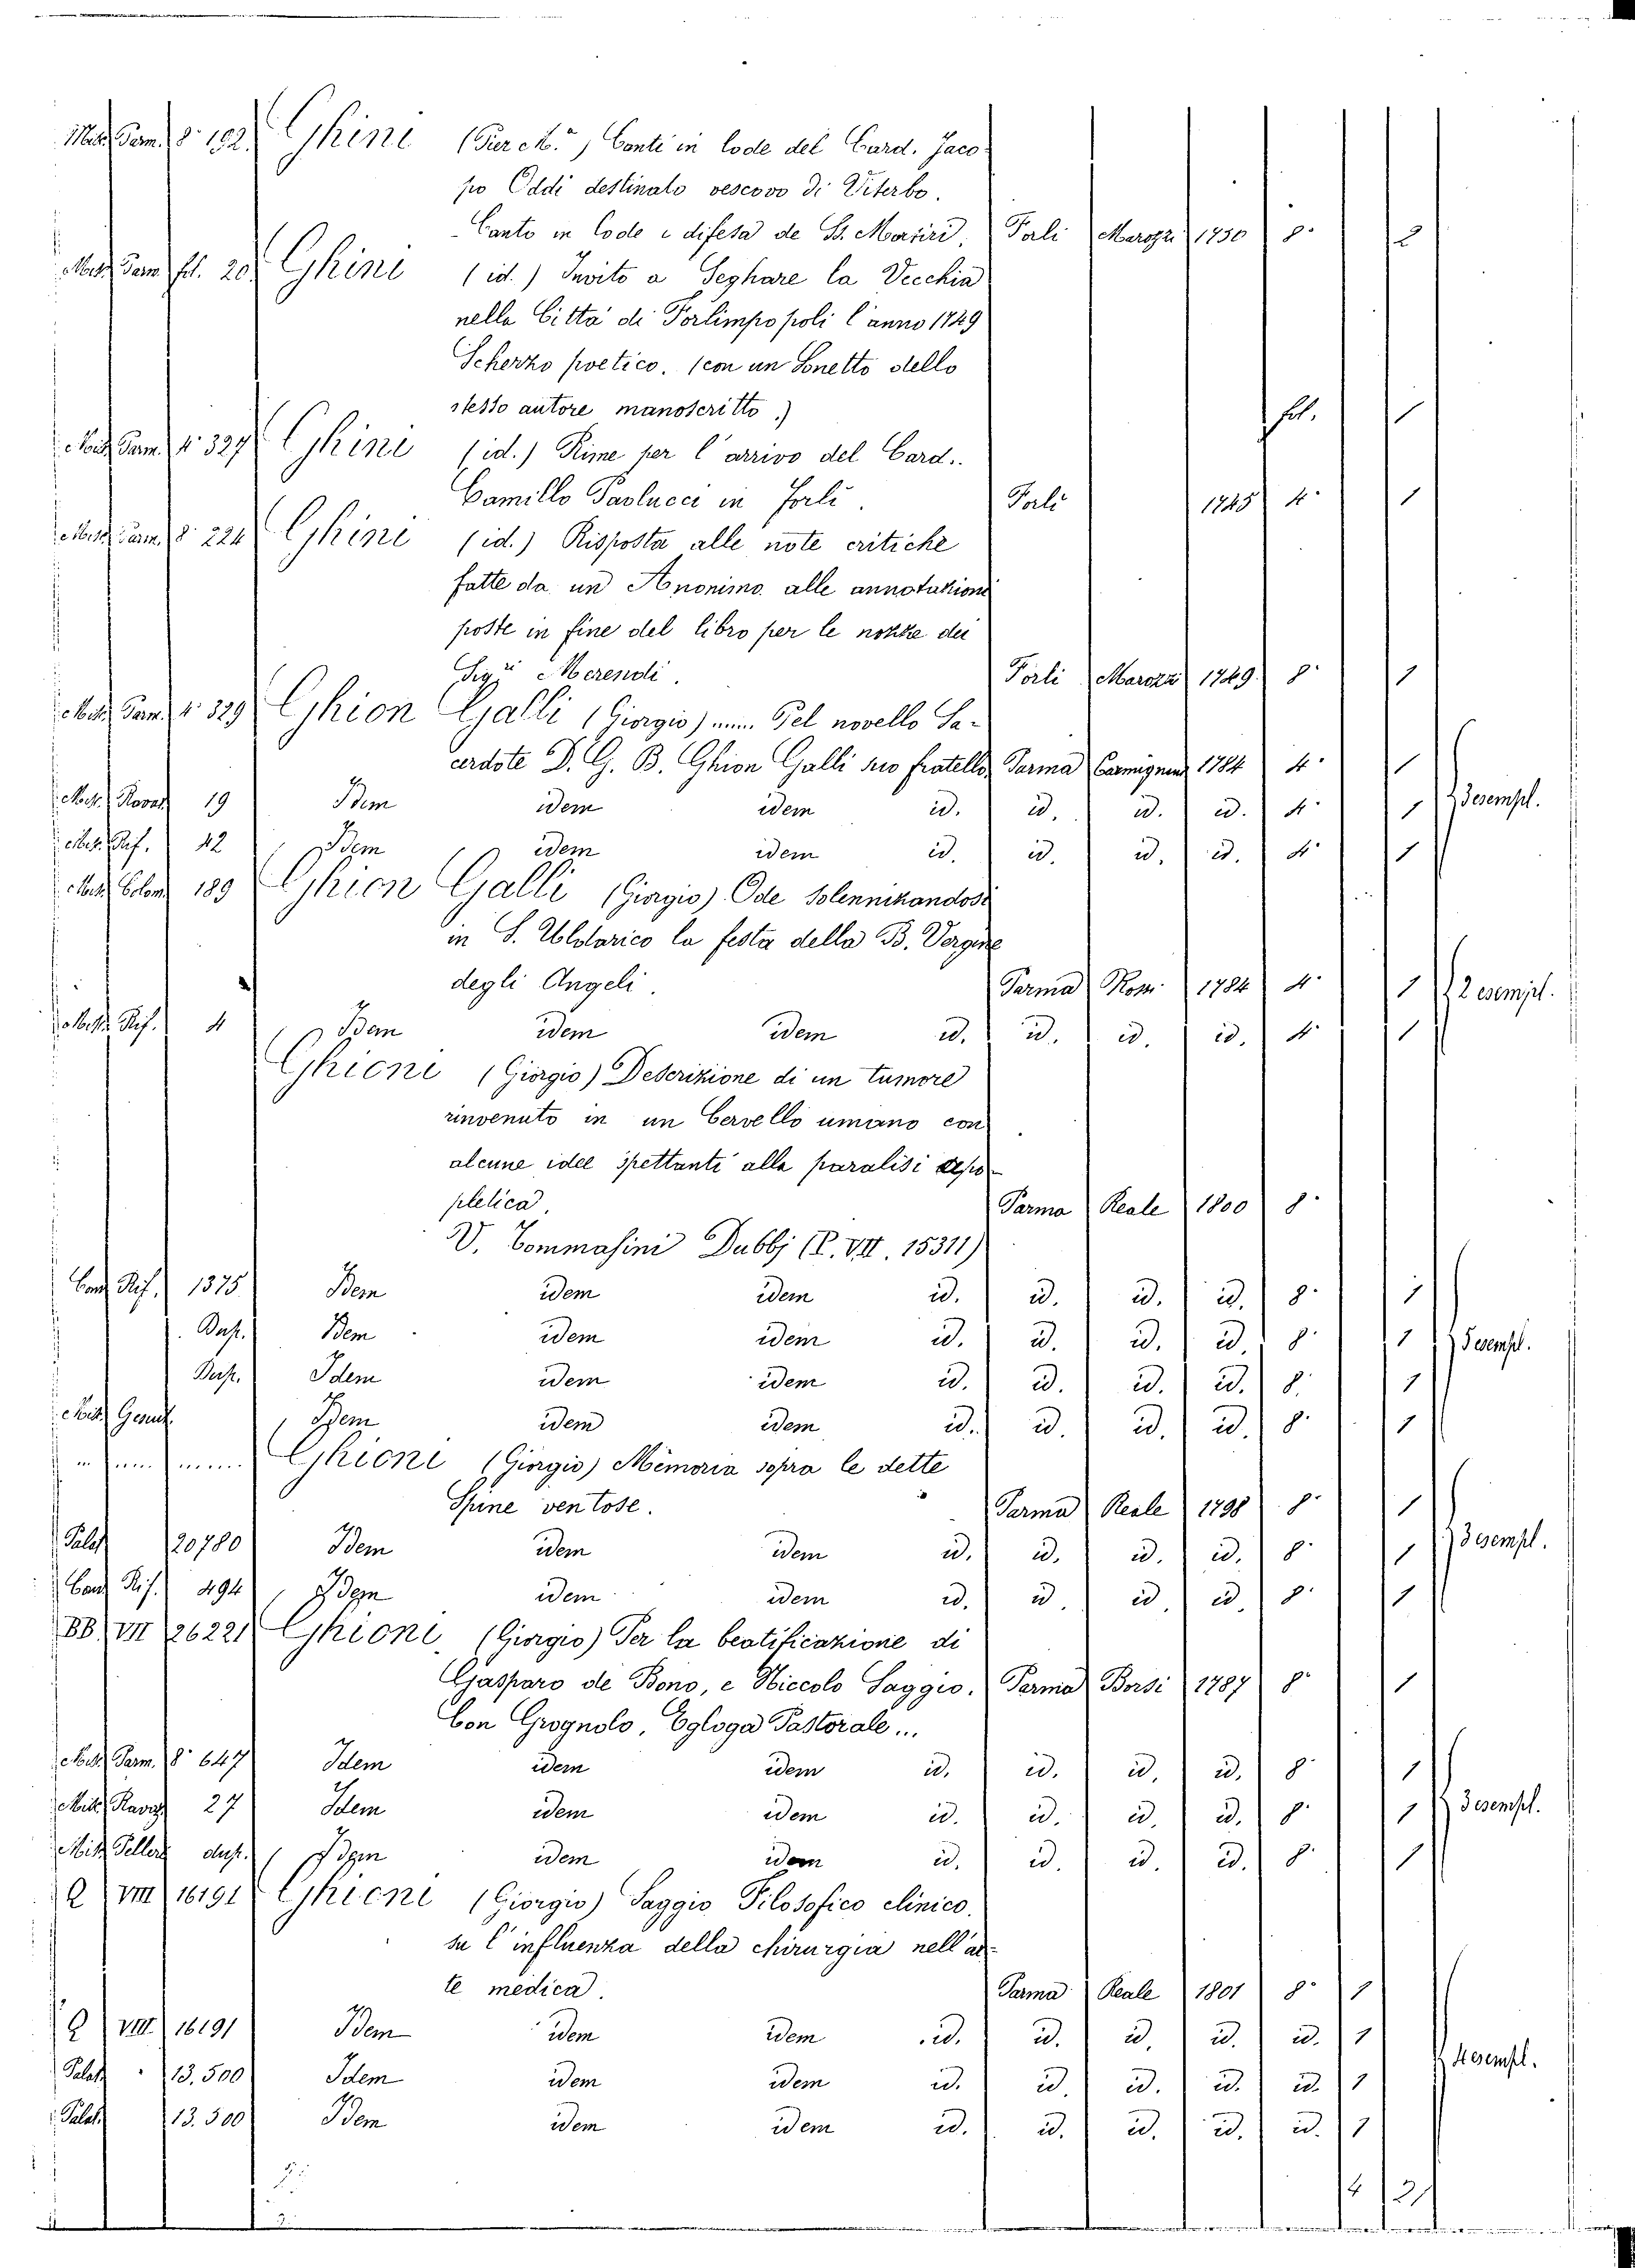 Parm. 8° 192. Ghini (Pier M.ª) Conti in lode del Card. Jaco
po Oddi destinato vescovo di Viterbo.
Canto in lode e difesa de SS. Martiri. Forlì Marozzi 1750 8° 2
Misc. Parm. fol. 20. Ghini (id.) Invito a Seghare la Vecchia
nella Città di Forlimpopoli l'anno 1749
Scherzo poetico. (con un Sonetto dello
stesso autore manoscritto.) fol. 1
Misc. Parm. 4° 327 Ghini (id.) Rime per l'arrivo del Card.
Camillo Paolucci in Forlì. Forlì 1745 4° 1
Misc. Parm. 8° 224 Ghini (id.) Risposta alle note critiche
fatte da un Anonimo alle annotazioni
poste in fine del libro per le nozze dei
Sigri Merendi. Forlì Marozzi 1749. 8° 1
Misc. Parm. 4° 329 Ghion Galli (Giorgio) Pel novello Sa-
cerdote D. G. B. Ghion Galli suo fratello Parma Carmignani 1784 4° 1
Misc. Rovat 19 Idem idem idem id. id. id. id. 4° 1 3 esempl.
Misc. Rif. 42 Idem idem idem id. id. id. id. 4° 1
Misc. Colom 189 Ghion Galli (Giorgio) Ode solennizandosi
in S. Uldarico la festa della B. Vergine
degli Angeli. Parma Ross. 1784 4° 1 2 esempl.
Misc. Rif. 4 Idem idem idem id. id. id. id. 4° 1
Ghioni (Giorgio) Descrizione di un tumore
rinvenuto in un Cervello umano con
alcune idee spettanti alla paralisi apo-
pletica. Parma Reale 1800 8°
V. Tommasini Dubbj (P. VII. 15311)
Cons. Rif. 1375 Idem idem idem id. id. id. id. 8° 1
Dup. Idem idem idem id. id. id. id. 8° 1 5 esempl.
Dup. Idem idem idem id. id. id. id. 8. 1
Misc. Idem idem idem id. id. id. id. 8° 1
Ghioni (Giorgio) Memoria sopra le dette
Spine ventose. Parma Reale 1798 8° 1
Palat 20780 Idem idem idem id. id. id. id. 8° 1 3 esempl.
Cons. Rif. 494 Idem idem idem id. id. id. id. 8° 1
BB VII 26221 Ghioni (Giorgio) Per la beatificazione di
Gasparo de Bono, e Niccolo Saggio. Parma Borsi 1787 8° 1
Con Grognolo, Egloga Pastorale...
Misc. Parm. 8° 647 Idem idem idem id. id. id. id. 8° 1
Misc. Ravaz 27 Idem idem idem id. id. id. id. 8° 1 3 esempl.
Misc. Peller dup. Idem idem idem id. id. id. id. 8° 1
Q VIII 16191 Ghioni (Giorgio) Saggio Filosofico clinico
su l'influenza della chirurgia nell'ar-
te medica. Parma Reale 1801 8° 1
Q VIII. 16191 Idem idem idem id. id. id. id. id. 1
Palat 13.500 Idem idem idem id. id. id. id. id. 1 4 esempl.
Palat. 13.500 Idem idem idem id. id. id. id. id. 1
4 21